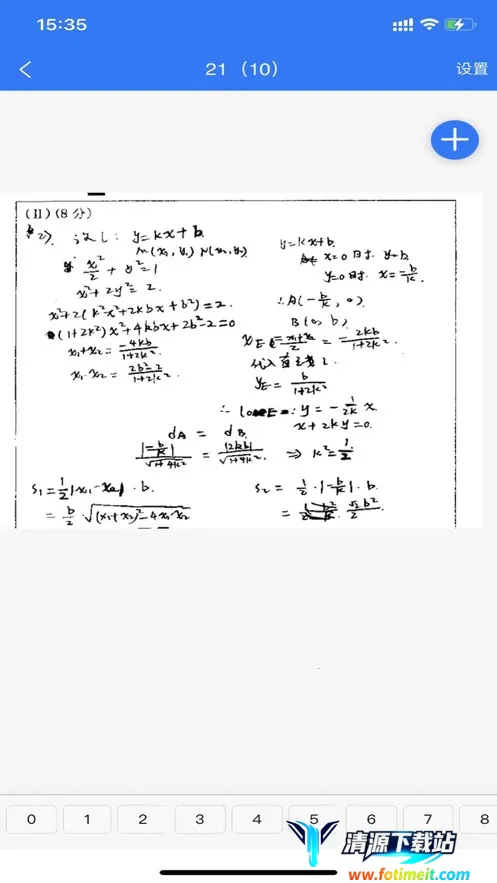 15:35
21（10）
设置
(II)(8分)
(2) 设 l: y=kx+b.
M(x₁, y₁) N(x₂, y₂)
x²/2 + y²=1
x²+2y²=2.
x²+2(k²x²+2kbx+b²)=2.
(1+2k²)x²+4kbx+2b²-2=0
x₁+x₂=-4kb/1+2k².
x₁·x₂=2b²-2/1+2k².
y=kx+b.
x=0时. y=b.
y=0时. x=-b/k.
∴A(-b/k, 0)
B(0, b)
x_E=x₁+x₂/2=-2kb/1+2k².
代入直线 l.
y_E=b/1+2k²
y=-1/2k x
x+2ky=0.
d_A = d_B
|-b/k|/√1+4k² = |2kb|/√1+4k² ⇒ k²=1/2
S₁=1/2|x₁-x₂|·b.
=b/2·√(x₁+x₂)²-4x₁x₂
S₂=1/2·|-b/k|·b.
=√2b²/2
0 1 2 3 4 5 6 7 8
清源下载站
www.fotimeit.com